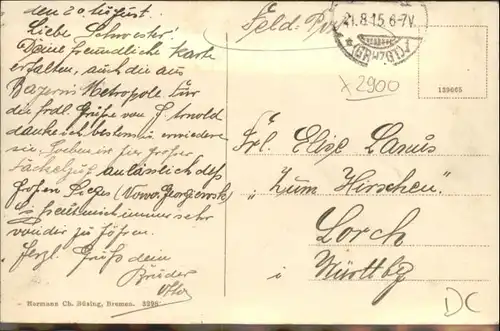 den 20. August.
Liebe Schwester!
Deine freundliche Karte
erhalten, auch die aus
Bayerns Metropole. Für
die frdl. Grüße von J. Arnold
danke ich bestens u. erwiedere
sie, soeben ist hier großer
Fackelzug anlässlich des
großen Sieges (Nowo Georgiewsk)
Es freut mich immer sehr
von dir zu hören.
Herzl. Gruß dein
Bruder
Otto
Hermann Ch. Büsing, Bremen. 3296
Feld-Post
21.8.15.6-7V.
2900
139065
Frl. Elise Lanis
„Zum Hirschen".
Lorch
i Württbg
DC